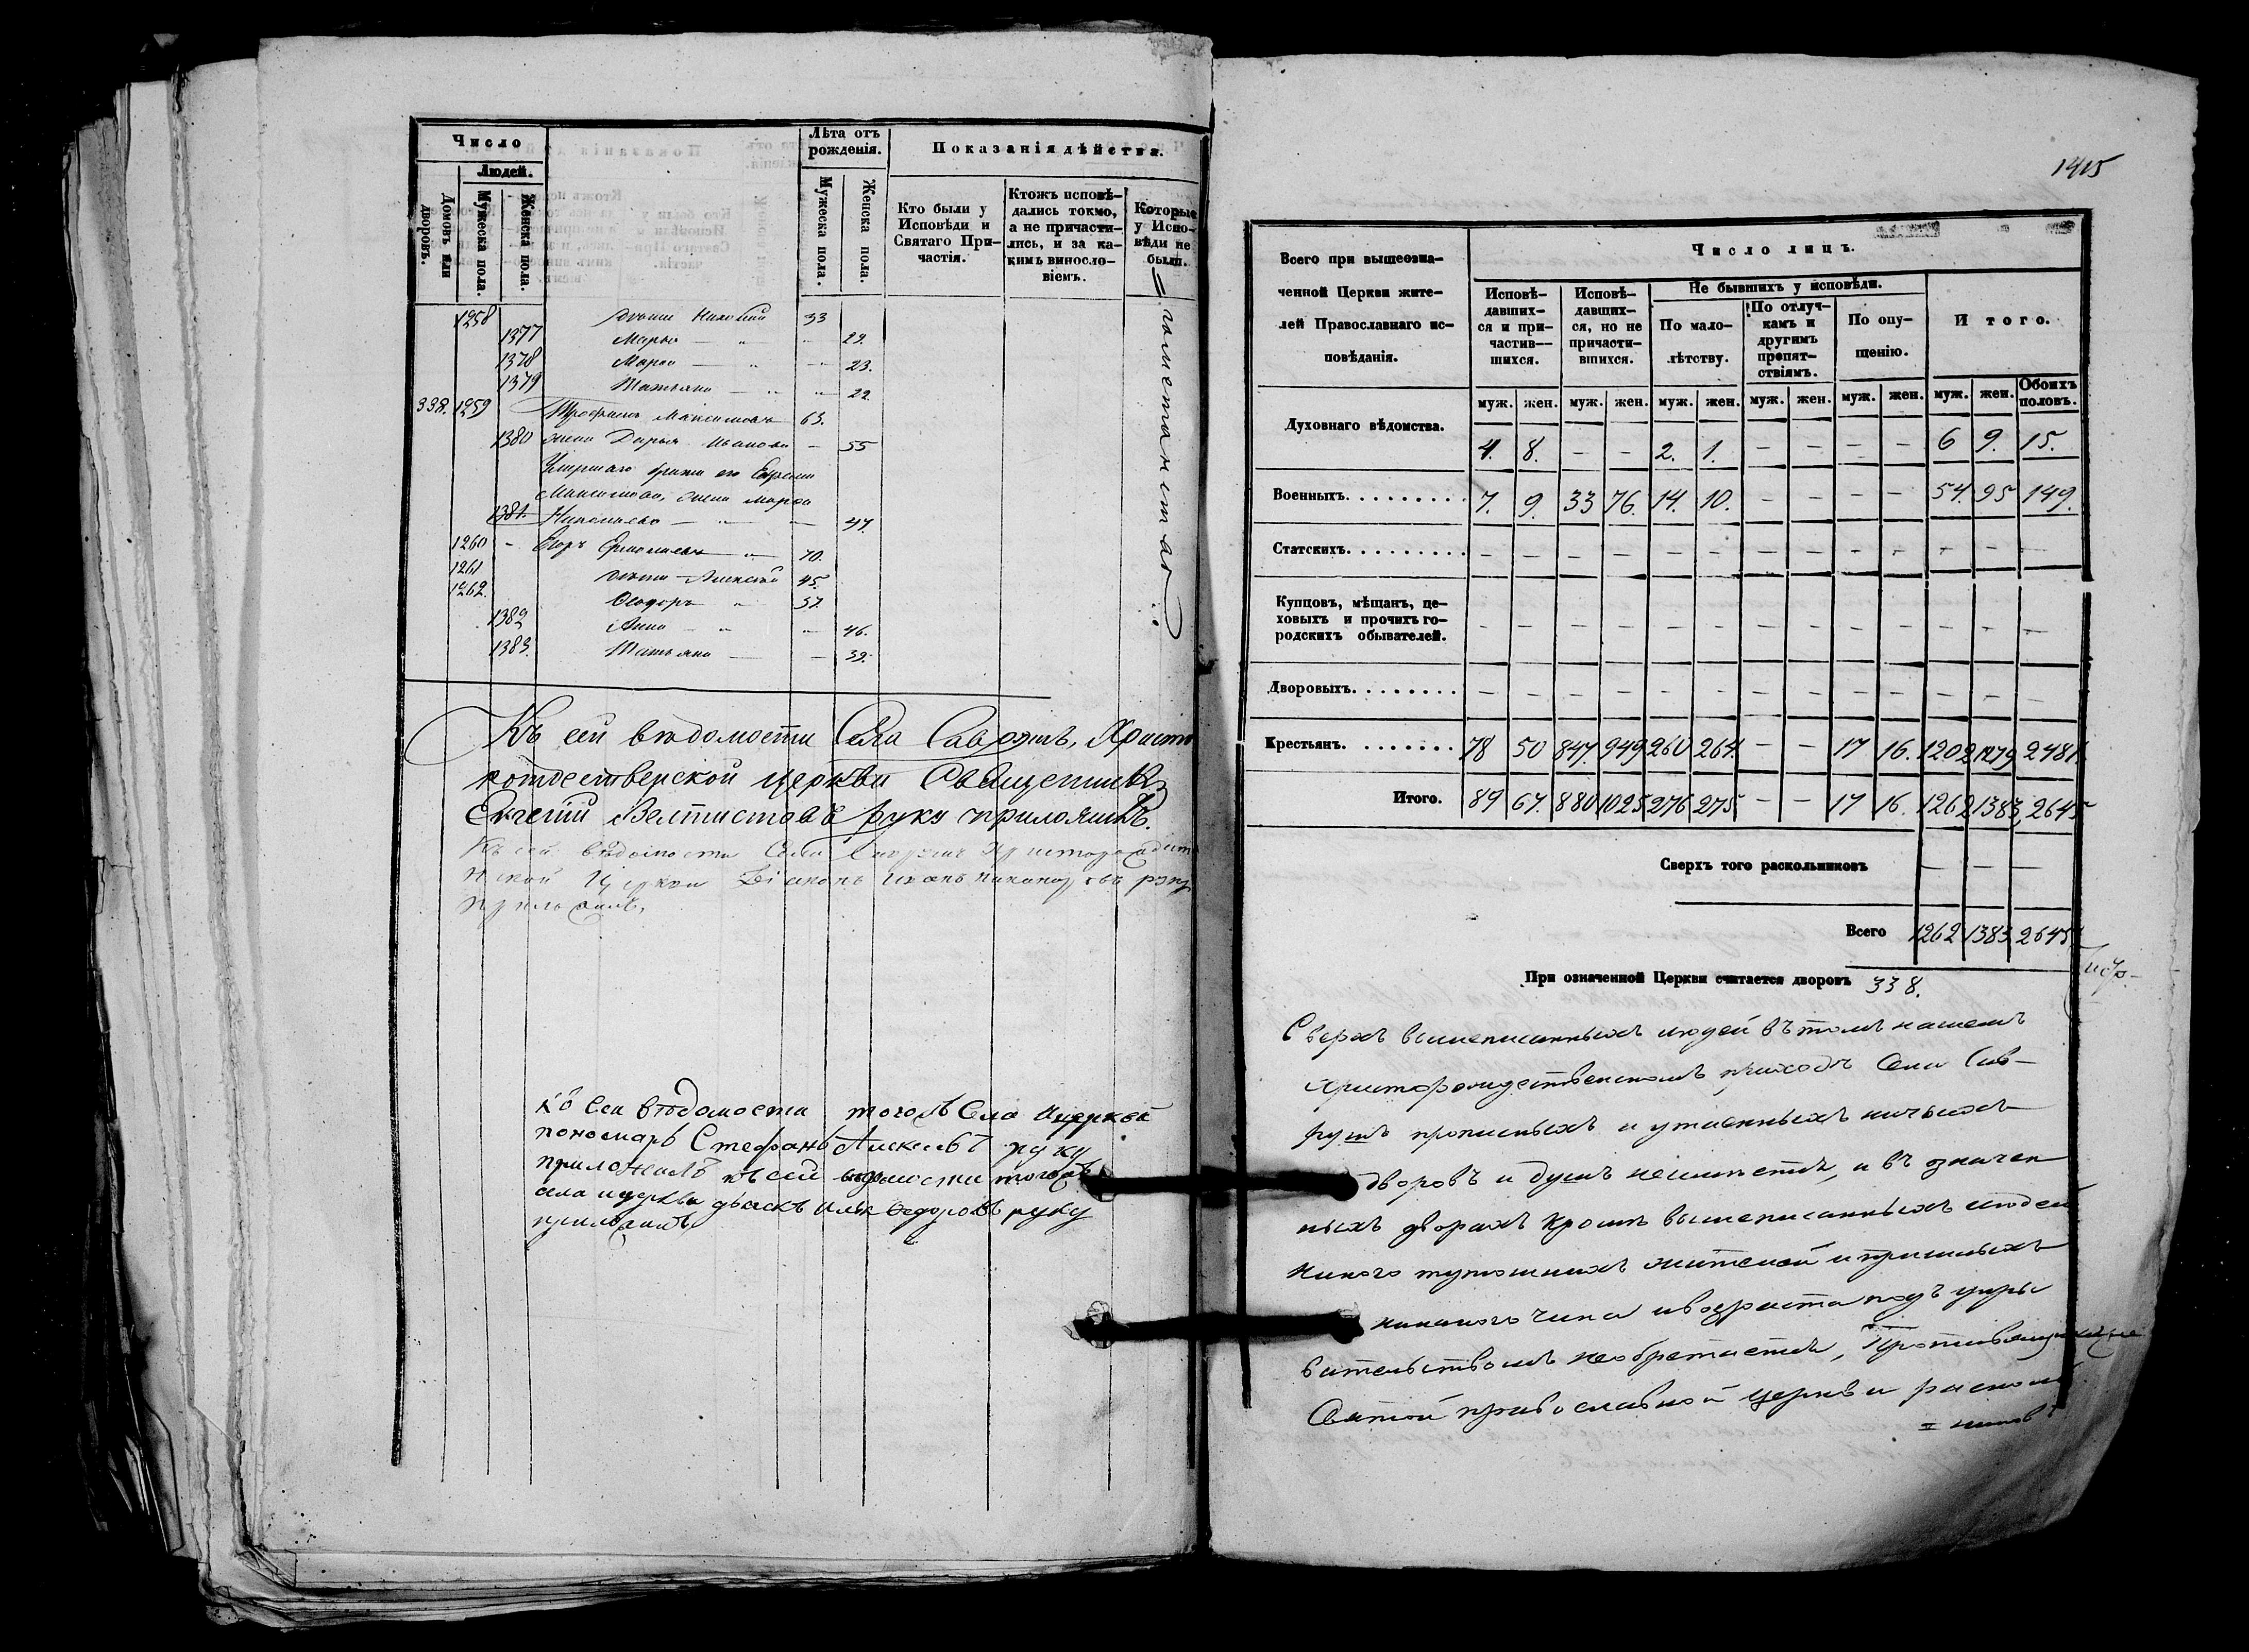 Число
Людей.
Домовъ или дворовъ.
Мужеска пола.
Женска пола.
Лѣта отъ рожденія.
Мужеска пола.
Женска пола.
Показанія дѣйства.
Кто были у Исповѣди и Святаго При-
частія.
Ктожъ исповѣ-
дались токмо,
а не причасти-
лись, и за ка-
кимъ винословіемъ.
Которые
у Испо-
вѣди не
были.
1258 33
1377 Марья — " — 29.
1378 — " — 23.
1379 Татьяна — " 22
338. 1259 Трофимъ Максимовъ 63.
1380 жена Дарья Иванова — 55
Умершаго брата его
Максимова, жена Марфа
1381. — " — 47.
1260 — Егоръ " 70.
1261 дѣти Алексѣй 45.
1262. Ѳеодоръ " 37
1382 Анна — " — 46.
1383. Татьяна — — 39.
Къ сей вѣдомости Села Саврушъ, Христо
рождественской церкви Священникъ
Евгеній Велтистовъ руку приложилъ.
Къ сей вѣдомости Села Христорождест
нской Церкви Діаконъ Никаноровъ руку
приложилъ,
къ сей вѣдомости тогожъ Села и церкви
пономарь Стефанъ руку
приложилъ къ сей вѣдомости тогожъ
села и церкви дьячекъ Илья Ѳедоровъ руку
приложилъ
1415
Всего при вышеозна-
ченной Церкви жите-
лей Православнаго ис-
повѣданія.
Число лицъ.
Исповѣ-
давших-
ся и при-
частив-
шихся.
Исповѣ-
давших-
ся, но не
причасти-
вшихся.
Не бывшихъ у исповѣди.
По мало-
лѣтству.
По отлуч-
камъ и
другимъ
препят-
ствіямъ.
По опу-
щенію.
Итого.
муж. жен. муж. жен. муж. жен. муж. жен. муж. жен. муж. жен. Обоихъ половъ.
Духовнаго вѣдомства. 4. 8. — — 2. 1. — — — — 6 9. 15.
Военныхъ. . . . . . . . . 7. 9. 33 76. 14. 10. — — — — 54. 95 149.
Статскихъ. . . . . . . . . — — — — — — — — — — — — —
Купцовъ, мѣщанъ, це-
ховыхъ и прочихъ го-
родскихъ обывателей. — — — — — — — — — — — — —
Дворовыхъ. . . . . . . . — — — — — — — — — — — — —
Крестьянъ. . . . . . . . 78 50 847. 949 260 264. — — 17 16. 1202 1279 2481.
Итого. 89 67. 880 1025 276 275 — — 17 16. 1262 1383, 2645
Сверхъ того раскольниковъ — — —
Всего 1262 1383 2645
При означенной Церкви считается дворовъ 338.
Сверхъ вышеписанныхъ людей въ томъ нашемъ
Христорождественскомъ приходѣ Села Сав-
рушъ прописныхъ и утаенныхъ ничьихъ
дворовъ и душъ неимѣется, и въ означен
ныхъ дворахъ кромѣ вышеписанныхъ людей
никого тутошнихъ жителей и пришлыхъ
никакого чина и возраста подъ укры
вательствомъ необрѣтается,
Святой православной Церкви расколь
= никовъ